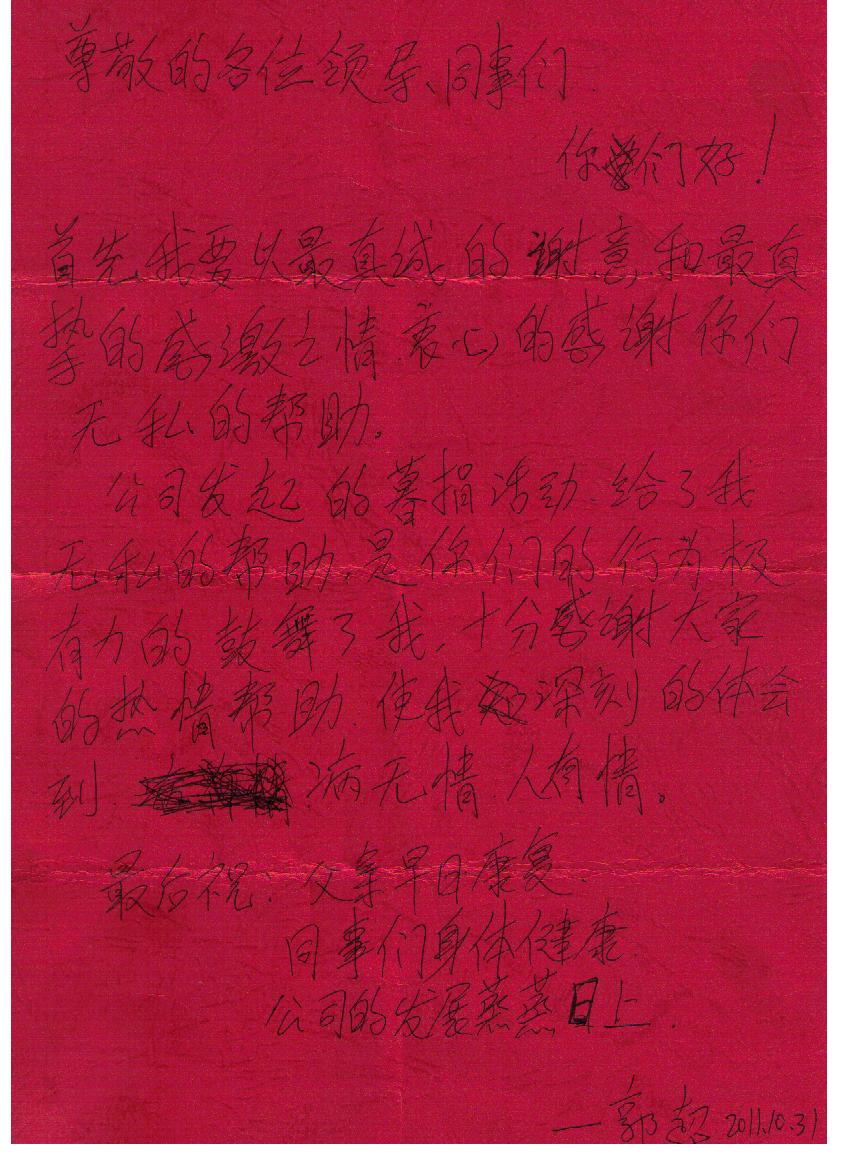 尊敬的各位领导、同事们.
你们好！
首先,我要以最真诚的谢意和最真
挚的感激之情.衷心的感谢你们
无私的帮助。
公司发起的募捐活动.给了我
无私的帮助.是你们的行为极
有力的鼓舞了我.十分感谢大家
的热情帮助.使我深刻的体会
到.病无情.人有情。
最后祝：父亲早日康复.
同事们身体健康.
公司的发展蒸蒸日上.
—郭超 2011.10.31